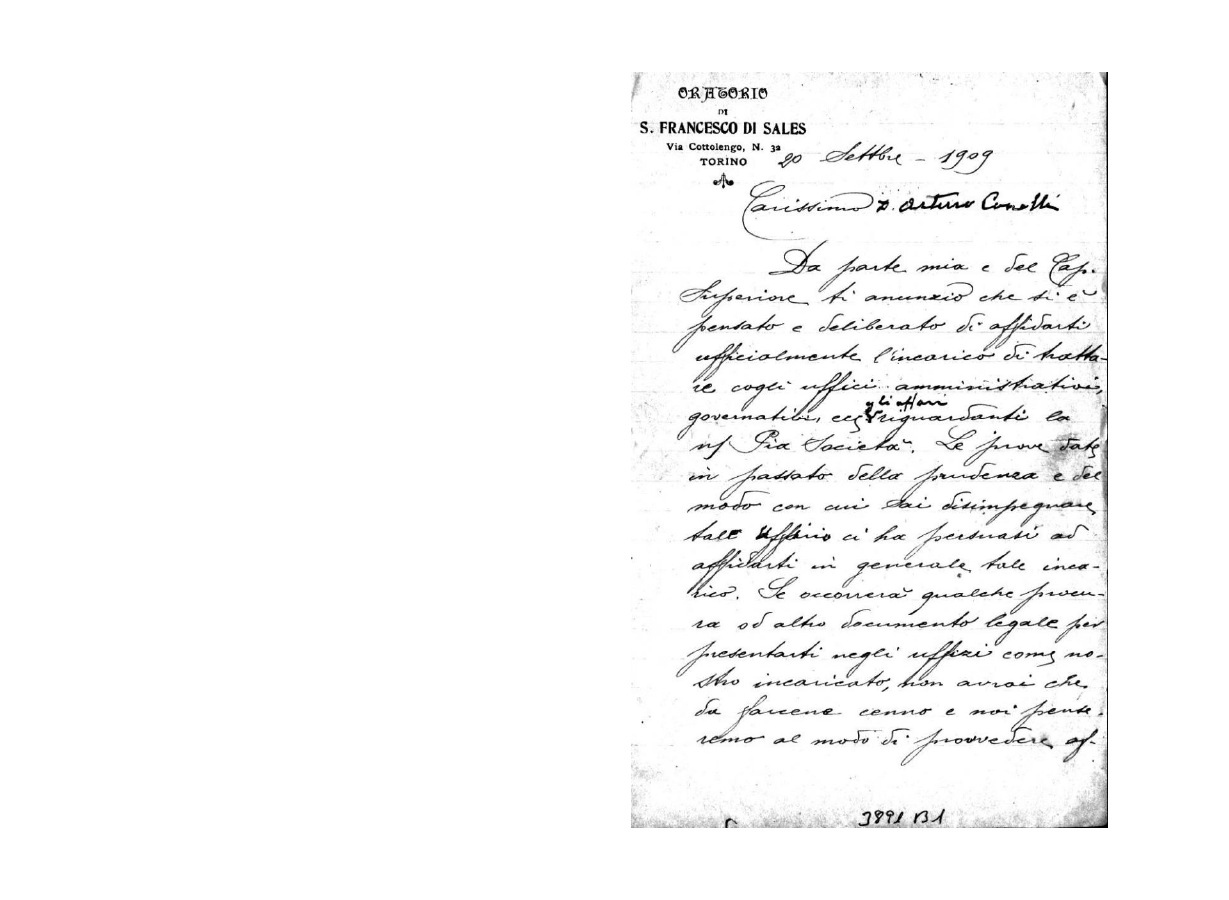 ORATORIO
DI
S. FRANCESCO DI SALES
Via Cottolengo, N. 32
TORINO
20 Settbre - 1909
Carissimo D. Arturo Conelli
Da parte mia e del Cap.
Superiore ti anunzio che si è
pensato e deliberato di affidarti
ufficialmente l'incarico di tratta-
re cogli uffici amministrativi,
gli affari
governativi, ecc riguardanti la
Pia Società. Le prove date
in passato della prudenza e del
modo con cui sai disimpegnare
tale Ufficio ci ha persuasi ad
affidarti in generale tale inca-
rico. Se occorrerà qualche procu-
ra od altro documento legale per
presentarti negli uffizi come no-
stro incaricato, non avrai che
da farcene cenno e noi pense-
remo al modo di provvedere af-
3891 B1